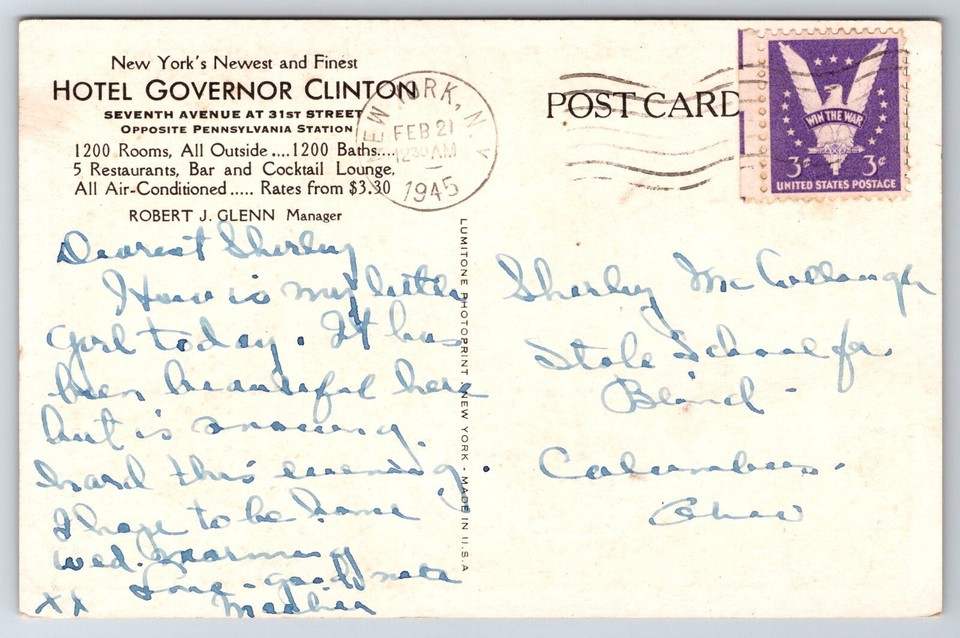 New York's Newest and Finest
HOTEL GOVERNOR CLINTON
SEVENTH AVENUE AT 31ST STREET
OPPOSITE PENNSYLVANIA STATION
1200 Rooms, All Outside ....1200 Baths....
5 Restaurants, Bar and Cocktail Lounge.
All Air-Conditioned ..... Rates from $3.30
ROBERT J. GLENN Manager
NEW YORK, N.Y.
FEB 21
12 30 AM
1945
POST CARD
WIN THE WAR
3¢ 3¢
UNITED STATES POSTAGE
Dearest Shirley
How is my little
girl today. It has
been beautiful here
but is snowing.
hard this evening.
I hope to be home
Wed. morning
Love - good nite
xx Mother
LUMITONE PHOTOPRINT NEW YORK - MADE IN U.S.A
Shirley McCullough
State School for
Blind -
Columbus.
Ohio